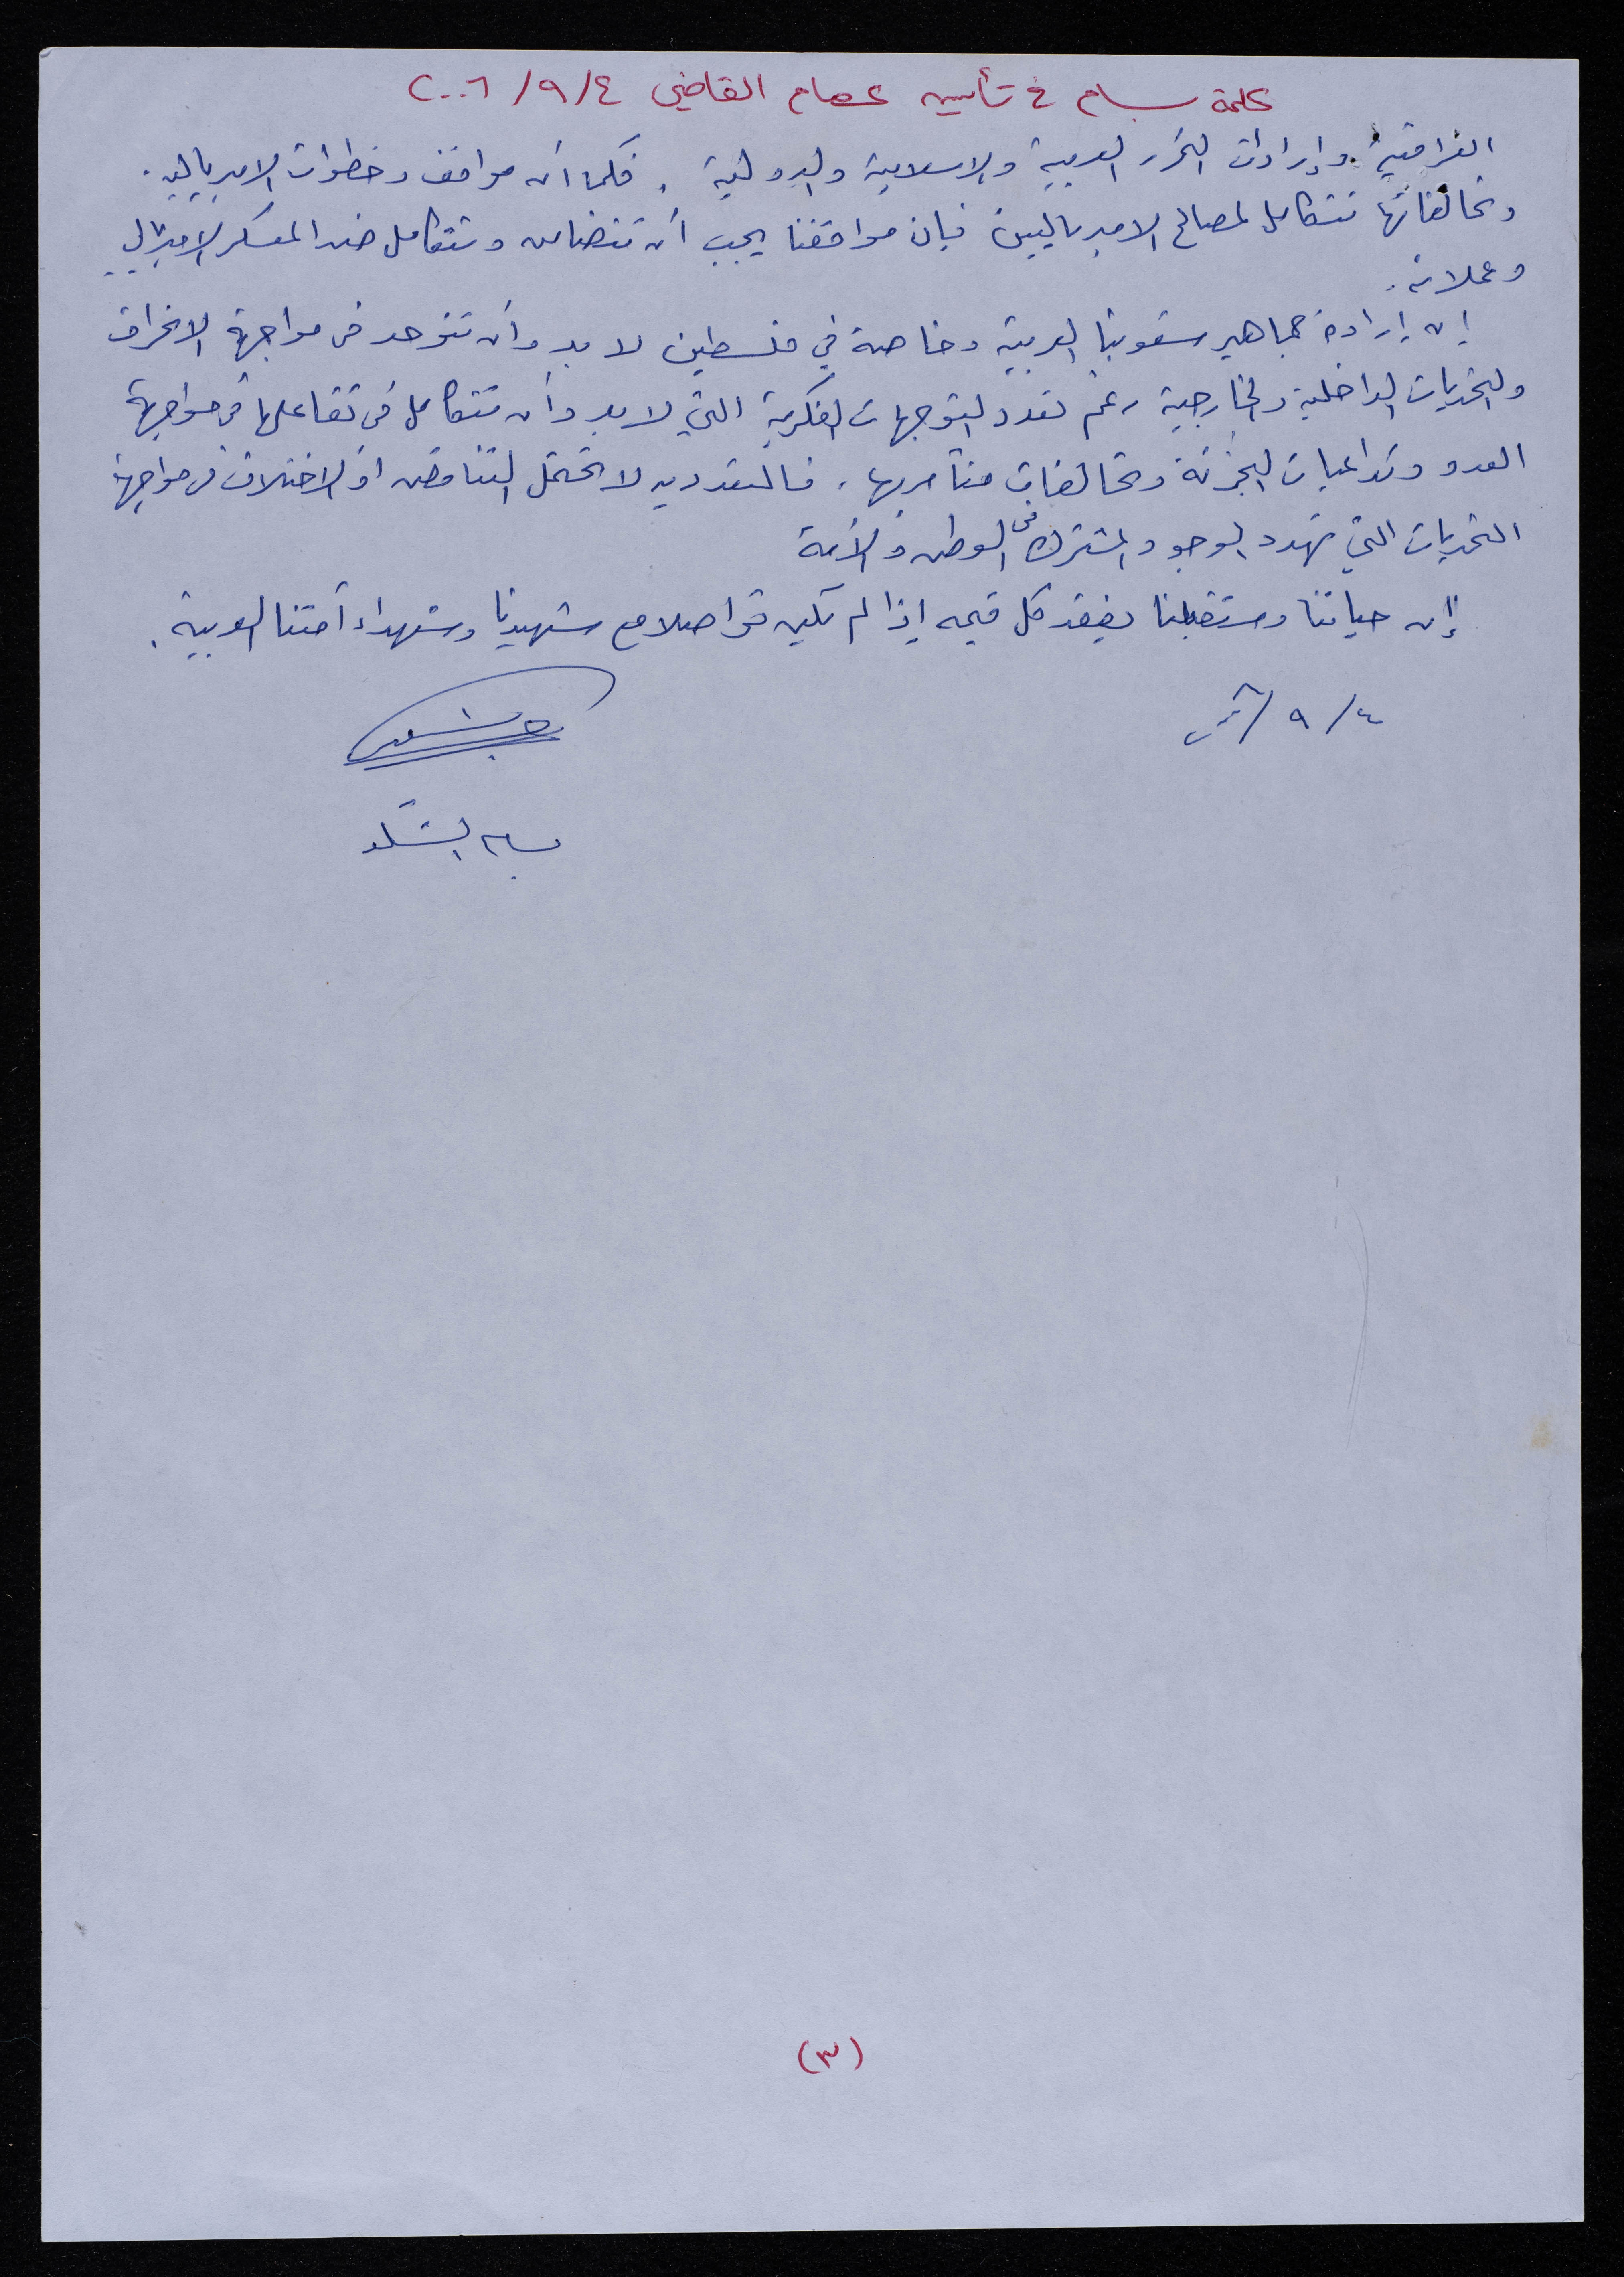 كلمة بسام في تأبين عصام القاضي ٤/ ٩/ ٢٠٠٦
العراقية وإرادات التحرر العربية والاسلامية والدولية . فكما أن مواقف وخطوات الامبرياليين
وتحالفاتها تتكامل لمصالح الامبرياليين فإن مواقفنا يجب أن تتضامن وتتكامل ضد المعسكر الامبريالي
وعملائه .
إن إرادة جماهير شعوبنا العربية وخاصة في فلسطين لا بد وأن تتوحد في مواجهة الانحراف
والتحديات الداخلية والخارجية رغم تعدد التوجهات الفكرية التي لا بد وأن تتكامل في تفاعلها في مواجهة
العدو وتداعيات التجزئة وتحالفات متآمريها . فالتعدديه لا تحتمل التناقض او الاختلاف في مواجهة
التحديات التي تهدد الوجود المشترك في الوطن والأمة
إن حياتنا ومستقبلنا يفقد كل قيمه إذا لم نكن تواصلا مع شهيدنا وشهداء أمتنا العربية .
٤/ ٩/
بسام الشكعه
(٣)